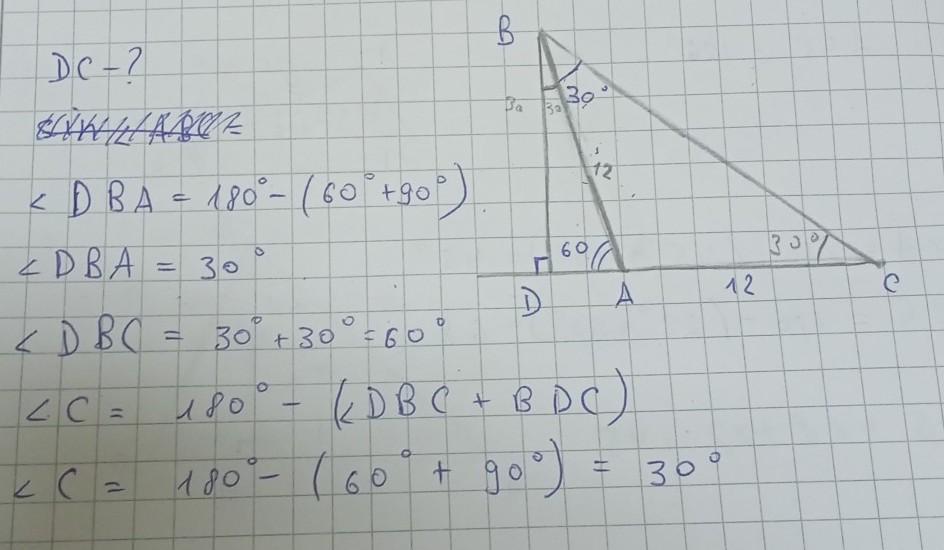 DC - ?
< DBA = 180° - (60° + 90°)
< DBA = 30°
< DBC = 30° + 30° = 60°
< C = 180° - (< DBC + BDC)
< C = 180° - (60° + 90°) = 30°
B
30°
30
12
60
30°
D
A
12
C